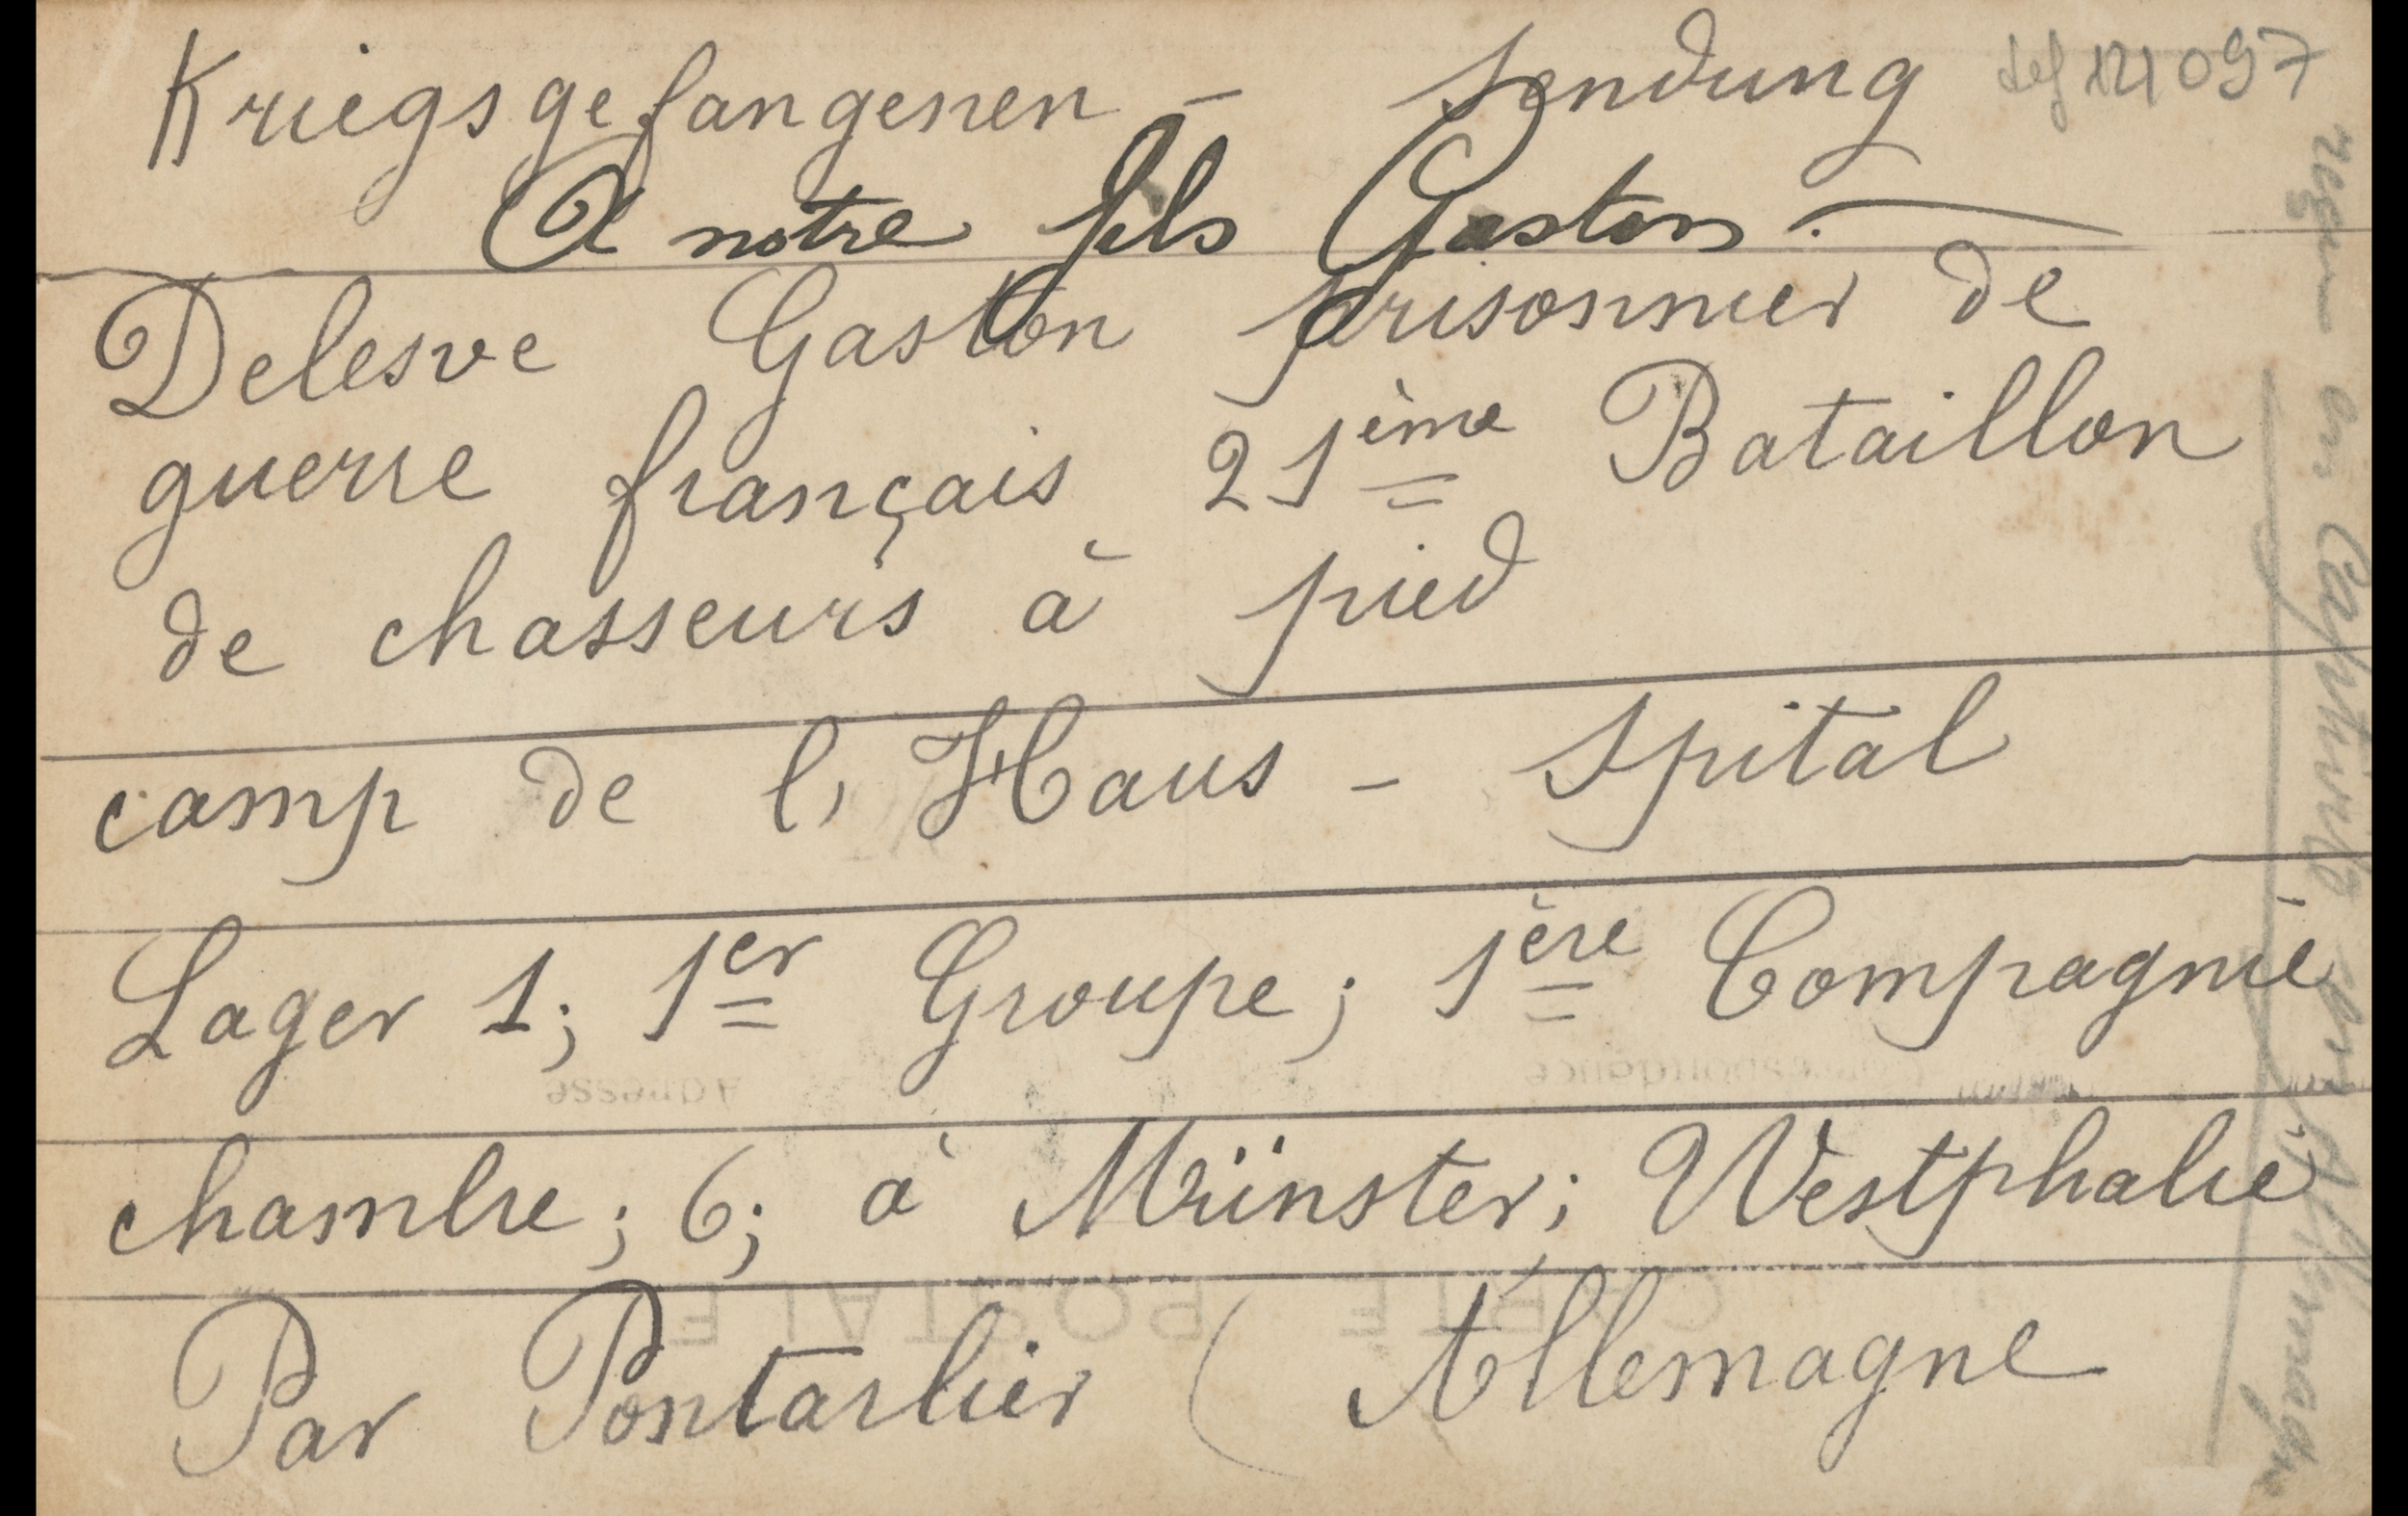 Kriegsgefangenen - Sendung
121097
A notre fils Gaston.
Delesve Gaston prisonnier de
guerre français 21ème Bataillon
de chasseurs à pied
camp de l, Haus - Spital
Lager 1; 1er Groupe; 1ère Compagnie
chambre; 6; à Münster; Westphalie
Par Pontarlier ( Allemagne
en Captivité Allemagne
Adresse
Correspondance
CARTE POSTALE